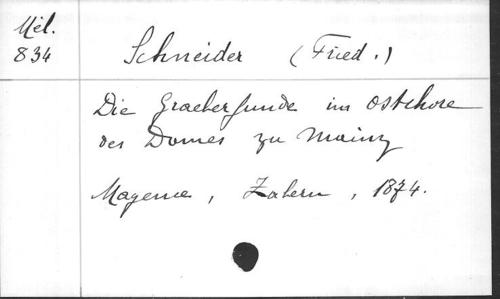 Mél.
834
Schneider (Fried.)
Die Graeberfunde im Ostchore
des Domes zu Mainz
Mayence, Zabern, 1874.